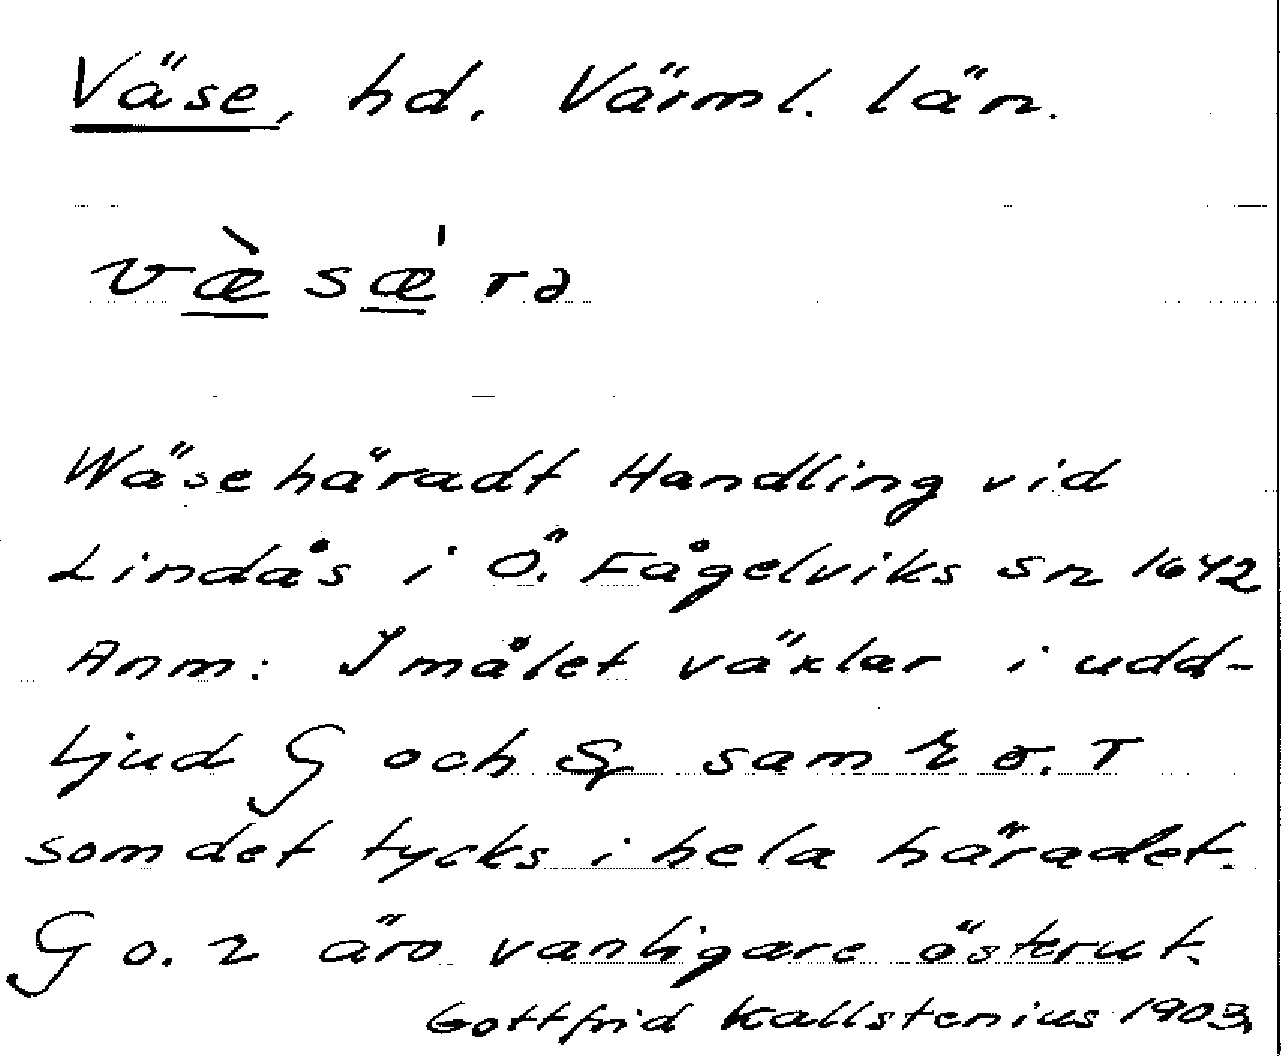 Väse, hd. Värml. län.
væ̀ sæ̍ rə
Wäsehäradt Handling vid
Lindås i Ö. Fågelviks sn 1642
Anm: I målet växlar i udd-
ljud G och samt o. r
som det tycks i hela häradet.
G o. r äro vanligare österut.
Gottfrid Kallstenius 1903